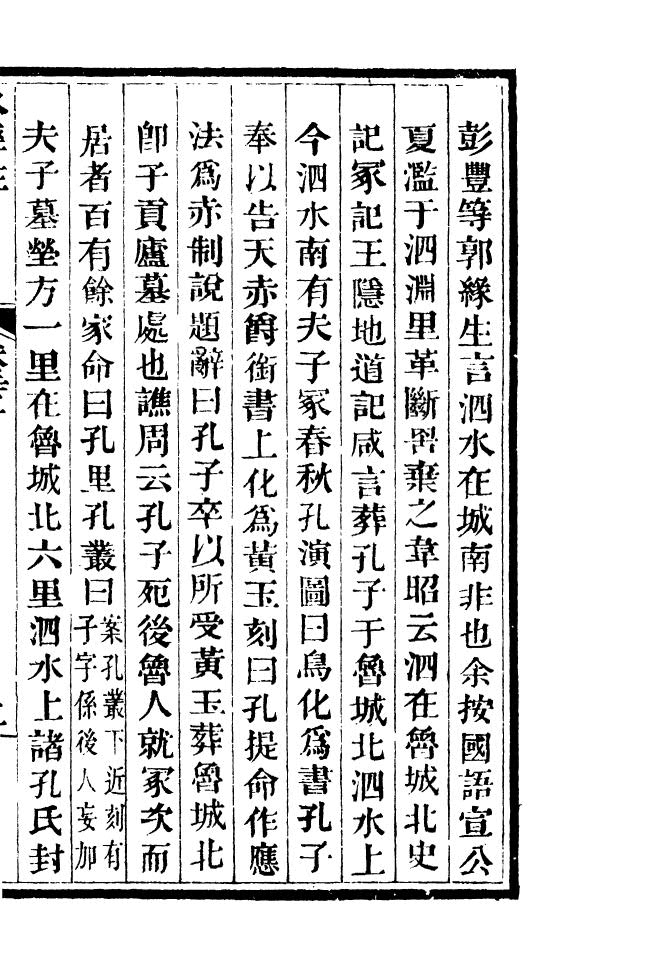 彭豐等郭緣生言泗水在城南非也余按國語宣公
夏濫于泗淵里革斷罟棄之韋昭云泗在魯城北史
記冢記王隱地道記咸言葬孔子于魯城北泗水上
今泗水南有夫子冢春秋孔演圖曰鳥化爲書孔子
奉以告天赤爵銜書上化爲黃玉刻曰孔提命作應
法爲赤制說題辭曰孔子卒以所受黃玉葬魯城北
卽子貢廬墓處也譙周云孔子死後魯人就冢次而
居者百有餘家命曰孔里孔叢曰案孔叢下近刻有子字係後人妄加
夫子墓塋方一里在魯城北六里泗水上諸孔氏封